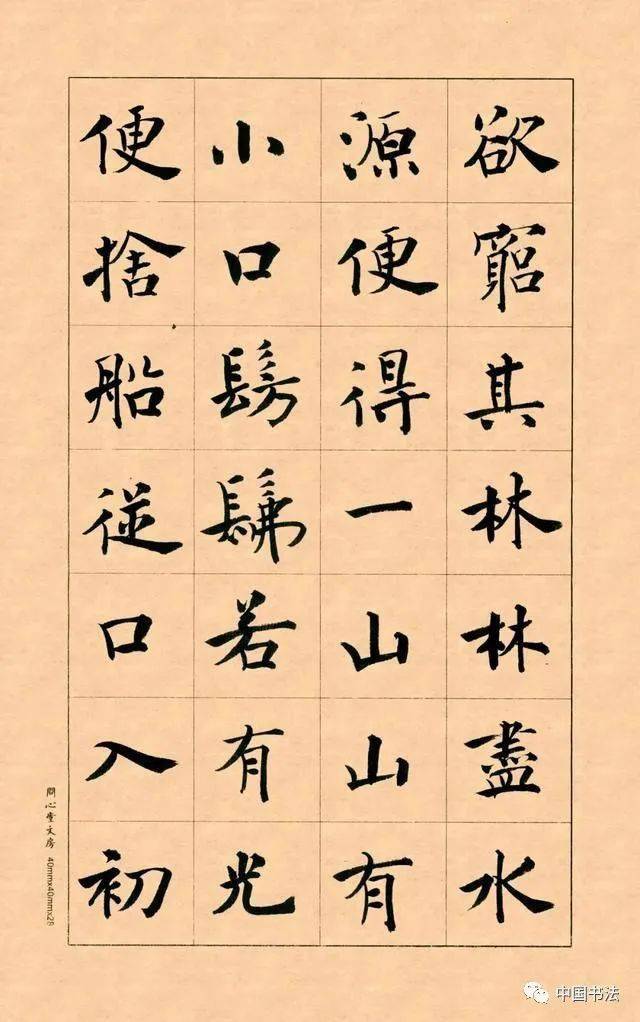 欲窮其林林盡水
源便得一山山有
小口髣髴若有光
便捨船從口入初
問心堂文房 40mmx40mmx28
中国书法